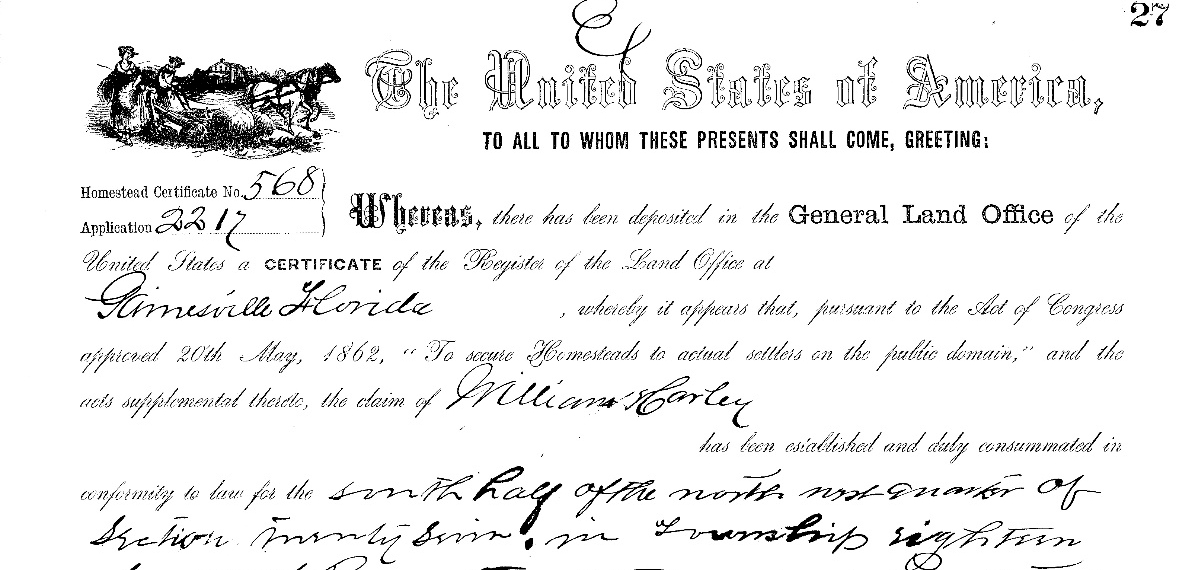 27
The United States of America,
TO ALL TO WHOM THESE PRESENTS SHALL COME, GREETING:
Homestead Certificate No. 568
Application 2217
Whereas, there has been deposited in the General Land Office of the
United States a CERTIFICATE of the Register of the Land Office at
Gainesville Florida , whereby it appears that, pursuant to the Act of Congress
approved 20th May, 1862, “To secure Homesteads to actual settlers on the public domain,” and the
acts supplemental thereto, the claim of William Harley
has been established and duly consummated in
conformity to law for the south half of the north west quarter of
Section twenty seven, in Township eighteen